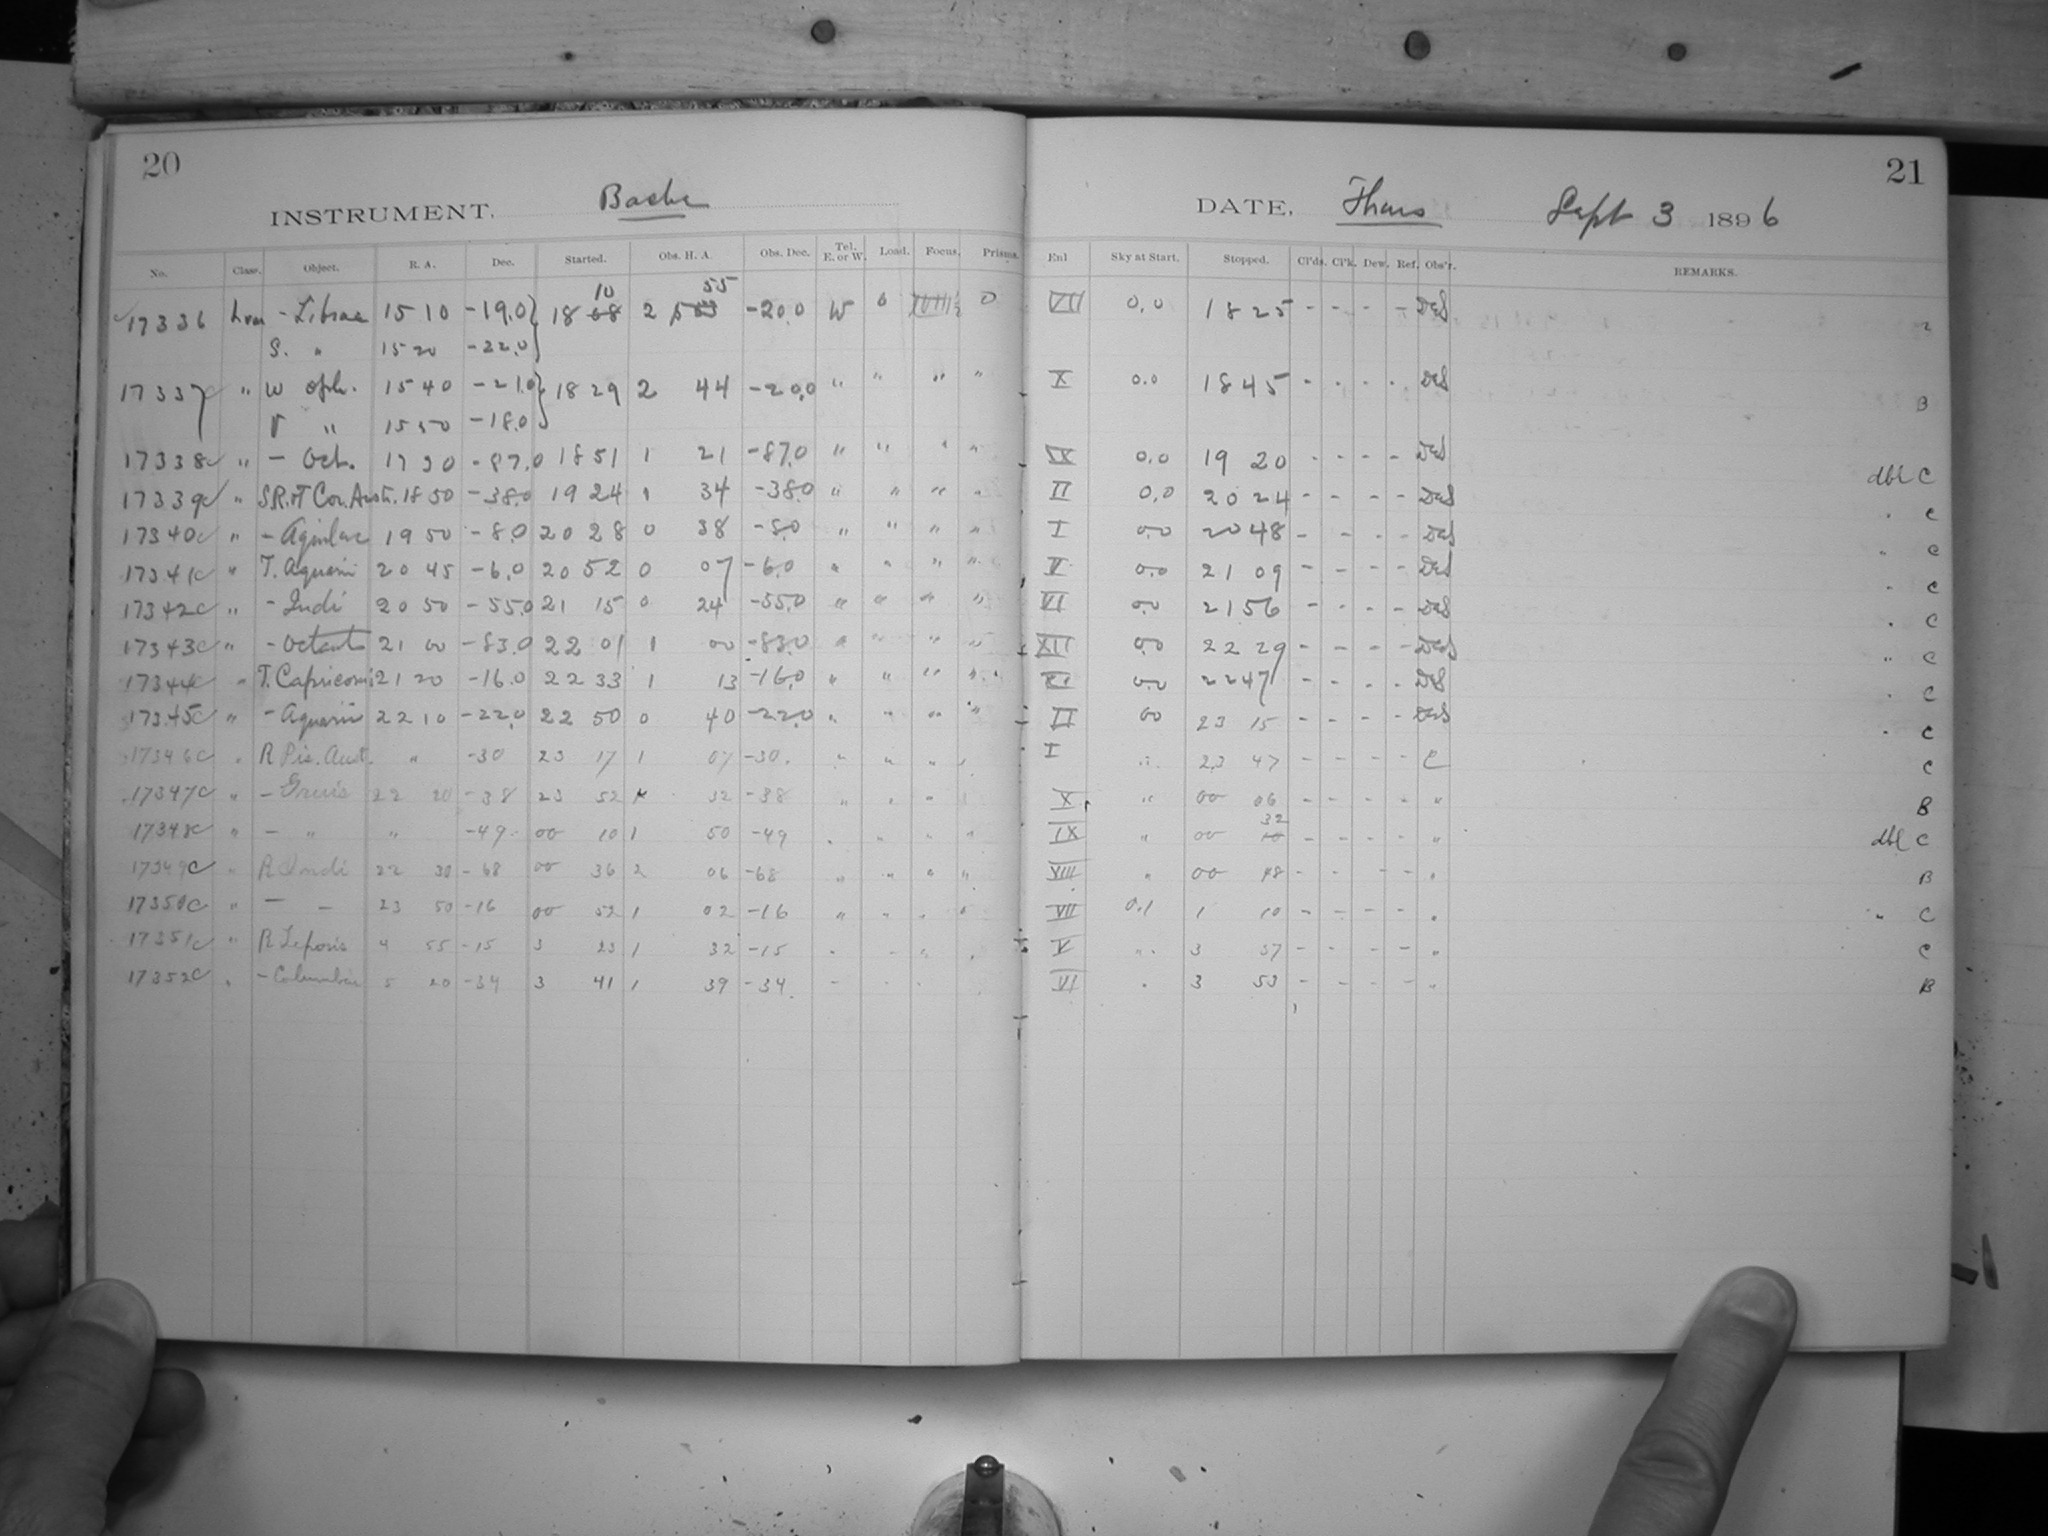 20
INSTRUMENT. Bache
No. Class. Object. R. A. Dec. Started. Obs. H. A. Obs. Dec. Tel. E. or W. Load. Focus. Prisms.
17336 - Librae 15 10 -19.0 18 10 2 55 -20.0 W 0 0
S. " 15 20 -22.0
17337 " W Oph. 15 40 -21.0 18 29 2 44 -20.0 " " " "
V " 15 50 -18.0
17338 " - Oct. 17 30 -87.0 18 51 1 21 -87.0 " " " "
17339 " S.R.+T Cor. Austr. 18 50 -38.0 19 24 1 34 -38.0 " " " "
17340 " - Aquilae 19 50 -8.0 20 28 0 38 -8.0 " " " "
17341 " T. Aquarii 20 45 -6.0 20 52 0 07 -6.0 " " " "
17342 " - Indi 20 50 -55.0 21 15 0 24 -55.0 " " " "
17343 " - Octantis 21 00 -83.0 22 01 1 00 -83.0 " " " "
17344 " T. Capricorni 21 20 -16.0 22 33 1 13 -16.0 " " " "
17345 " - Aquarii 22 10 -22.0 22 50 0 40 -22.0 " " " "
17346 " R Pis. Aust. " -30 23 17 1 07 -30. " " " "
17347 " - Gruis 22 20 -38 23 52 32 -38 " " " "
17348 " - " " -49 00 10 1 50 -49 " " " "
17349 " R Indi 22 30 -68 00 36 2 06 -68 " " " "
17350 " - - 23 50 -16 00 52 1 02 -16 " " " "
17351 " R Leporis 4 55 -15 3 23 1 32 -15
17352 " - Columbae 5 20 -34 3 41 1 39 -34
21
DATE, Thurs Sept 3 1896
Enl Sky at Start. Stopped. Cl'ds. Cl'k. Dew. Ref. Obs'r. REMARKS.
VII 0.0 18 25 - - - - DeS
X 0.0 18 45 - - - - DeS B
IX 0.0 19 20 - - - - DeS dbl C
II 0.0 20 24 - - - - DeS " C
I 0.0 20 48 - - - - DeS " C
V 0.0 21 09 - - - - DeS " C
VI 0.0 21 56 - - - - DeS " C
XII 0.0 22 29 - - - - DeS " C
XI 0.0 22 47 - - - - DeS " C
II 00 23 15 - - - - DeS " C
I " 23 47 - - - - C C
X " 00 06 - - - - " B
IX " 00 32 - - - - " dbl C
VIII " 00 48 - - - - " B
VII 0.1 1 10 - - - - " " C
V " 3 37 - - - - " C
VI " 3 53 - - - - " B